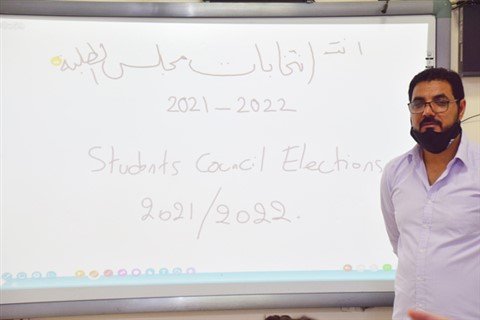 انت انتخابات مجلس الطلبة
2021-2022
Students Council Elections
2021/2022.